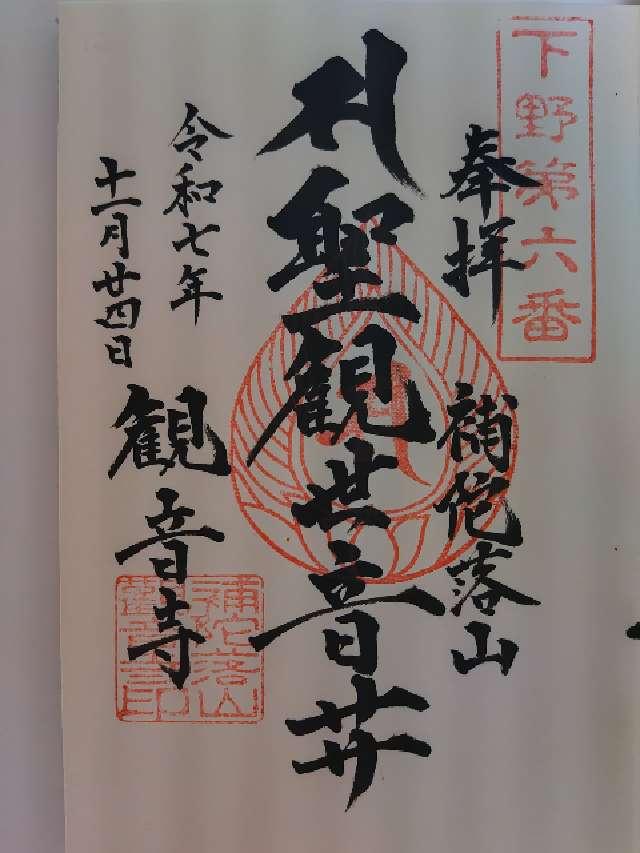 下野第六番
奉拝
補陀落山
聖観世音菩
令和七年
十一月廿四日
観音寺
補陀落山
観音寺印